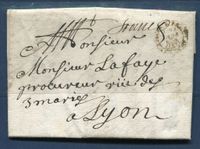 Monsieur
Monsieur Lafaye
procureur rüe des
3 maries
a Lyon